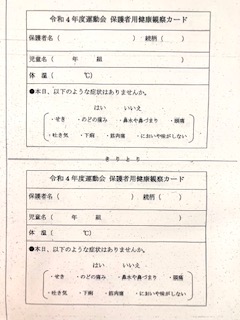 令和４年度運動会 保護者用健康観察カード
保護者名（　　　　　　　　）続柄（　　　）
児童名（　　年　　組　　　　　　　　）
体　温（　　　　　℃）
●本日、以下のような症状はありませんか。
はい　　いいえ
・せき　・のどの痛み　・鼻水や鼻づまり　・頭痛
・吐き気　・下痢　・筋肉痛　・においや味がしない
きりとり
令和４年度運動会 保護者用健康観察カード
保護者名（　　　　　　　　）続柄（　　　）
児童名（　　年　　組　　　　　　　　）
体　温（　　　　　℃）
●本日、以下のような症状はありませんか。
はい　　いいえ
・せき　・のどの痛み　・鼻水や鼻づまり　・頭痛
・吐き気　・下痢　・筋肉痛　・においや味がしない